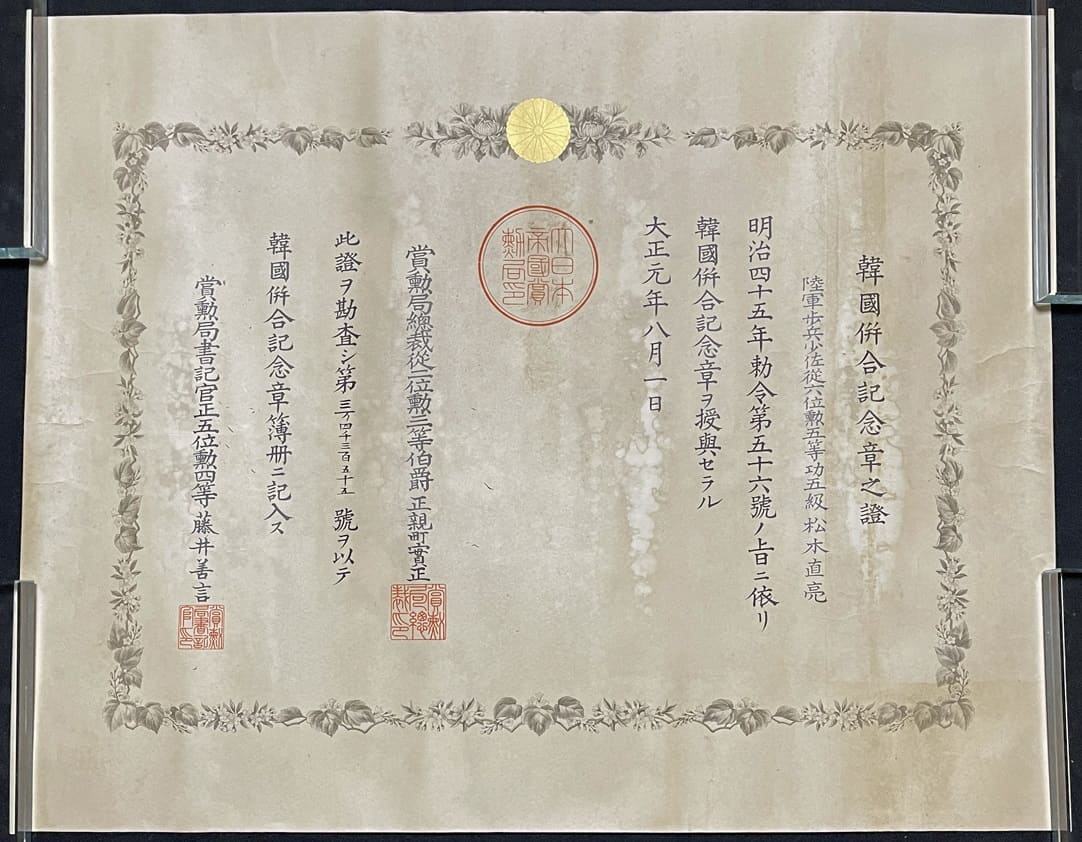 韓國併合記念章之證
陸軍歩兵少佐從六位勲五等功五級 松木直亮
明治四十五年勅令第五十六號ノ旨ニ依リ
韓國併合記念章ヲ授與セラル
大正元年八月一日
大日本
帝國賞
勲局印
賞勲局總裁從二位勲三等伯爵 正親町實正
賞勲
局總
裁印
此證ヲ勘査シ第三万四千三百五十五號ヲ以テ
韓國併合記念章簿册ニ記入ス
賞勲局書記官正五位勲四等藤井善言
賞勲
局書記
官印